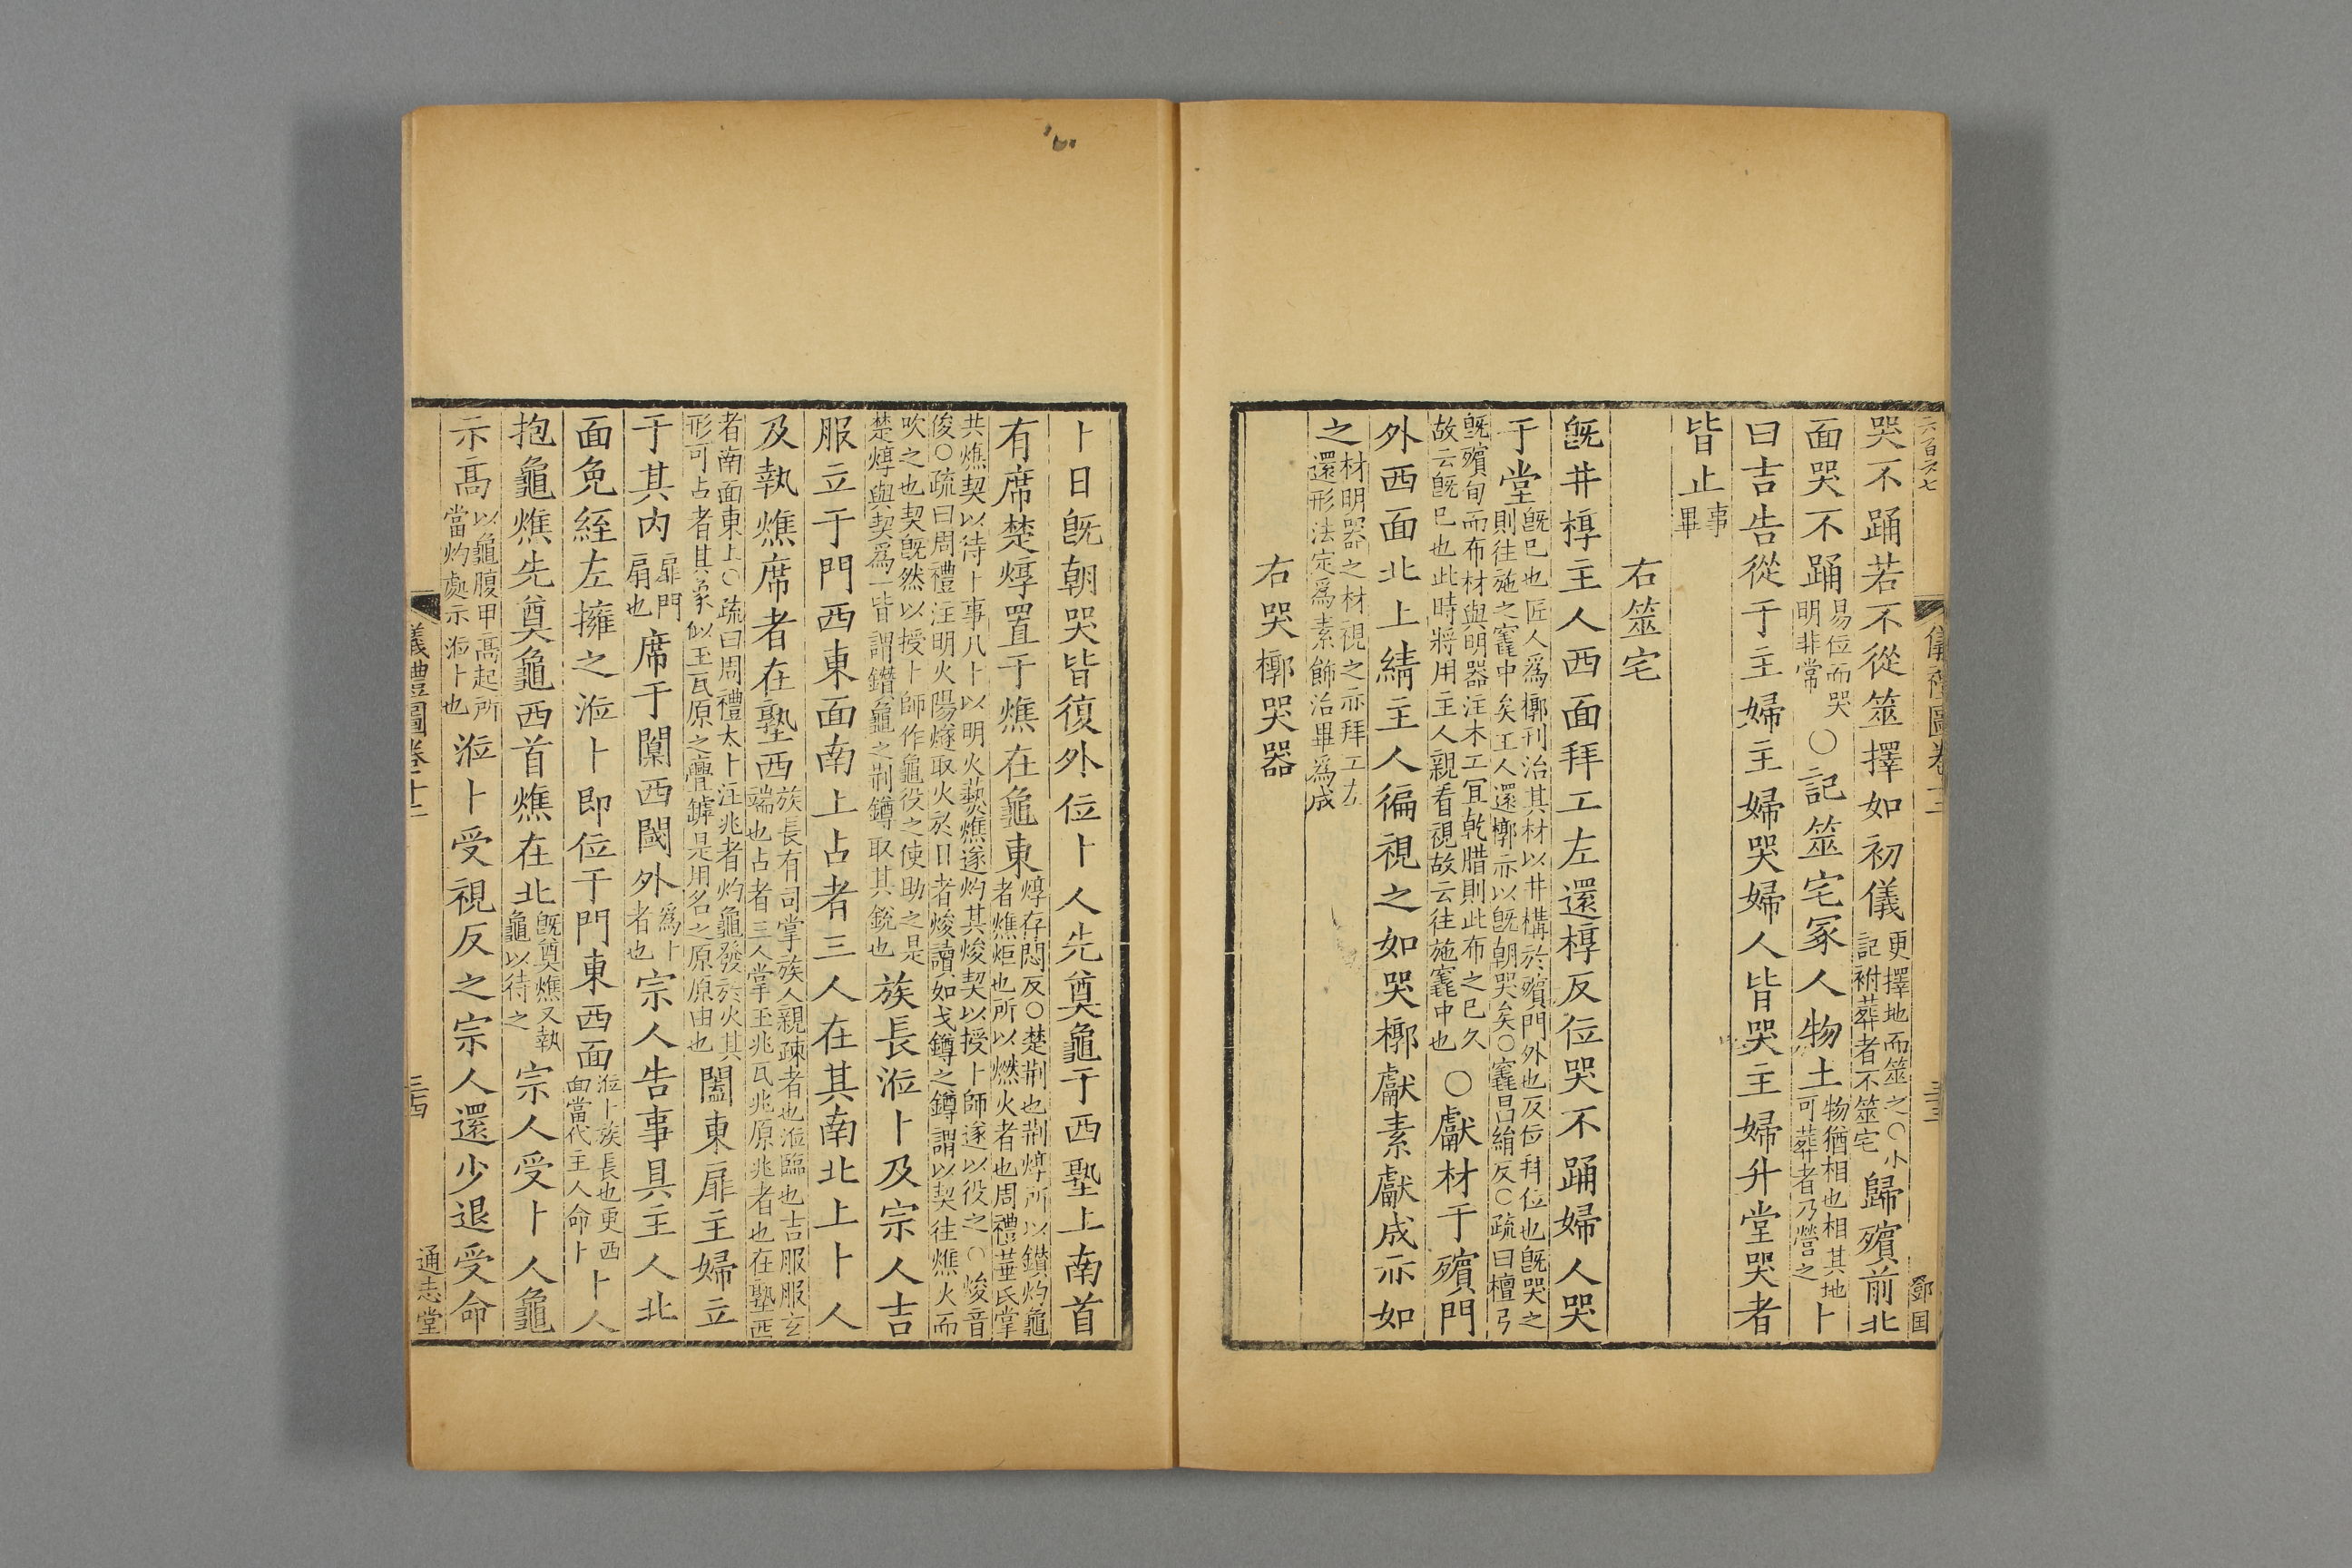 儀禮圖卷十二
三三
鄧国
哭不踊若不從筮擇如初儀更擇地而筮之○小記祔葬者不筮宅歸殯前北
面哭不踊易位而哭明非常○記筮宅冢人物土物猶相也相其地可葬者乃營之卜
曰吉告從于主婦主婦哭婦人皆哭主婦升堂哭者
皆止事畢
右筮宅
旣井椁主人西面拜工左還椁反位哭不踊婦人哭
于堂旣已也匠人爲槨刊治其材以井構於殯門外也反位拜位也旣哭之則往施之竁中矣工人還槨亦以旣朝哭矣○竁昌絹反○疏曰檀弓
旣殯旬而布材與明器注木工宜乾腊則此布之已久故云旣已也此時將用主人親看視故云往施竁中也○獻材于殯門
外西面北上綪主人徧視之如哭槨獻素獻成亦如
之材明器之材視之亦拜工左還形法定爲素飾治畢爲成
右哭槨哭器
卜日旣朝哭皆復外位卜人先奠龜于西塾上南首
有席楚焞置于燋在龜東焞存悶反○楚荆也荆焞所以鑚灼龜者燋炬也所以燃火者也周禮菙氏掌
共燋契以待卜事凡卜以明火爇燋遂灼其焌契以授卜師遂以役之○焌音俊○疏曰周禮注明火陽燧取火於日者焌讀如戈鐏之鐏謂以契往燋火而
吹之也契旣然以授卜師作龜役之使助之是楚焞與契爲一皆謂鑽龜之荆鐏取其銳也族長涖卜及宗人吉
服立于門西東面南上占者三人在其南北上卜人
及執燋席者在塾西族長有司掌族人親疎者也涖臨也吉服服玄端也占者三人掌玉兆瓦兆原兆者也在塾西
者南面東上○疏曰周禮太卜注兆者灼龜發於火其形可占者其象似玉瓦原之舋罅是用名之原原由也闔東扉主婦立
于其内扉門扇也席于闑西閾外爲卜者也宗人告事具主人北
面免絰左擁之涖卜即位于門東西面涖卜族長也更西面當代主人命卜卜人
抱龜燋先奠龜西首燋在北旣奠燋又執龜以待之宗人受卜人龜
示高以龜腹甲高起所當灼處示涖卜也涖卜受視反之宗人還少退受命
儀禮圖卷十二
三四
通志堂